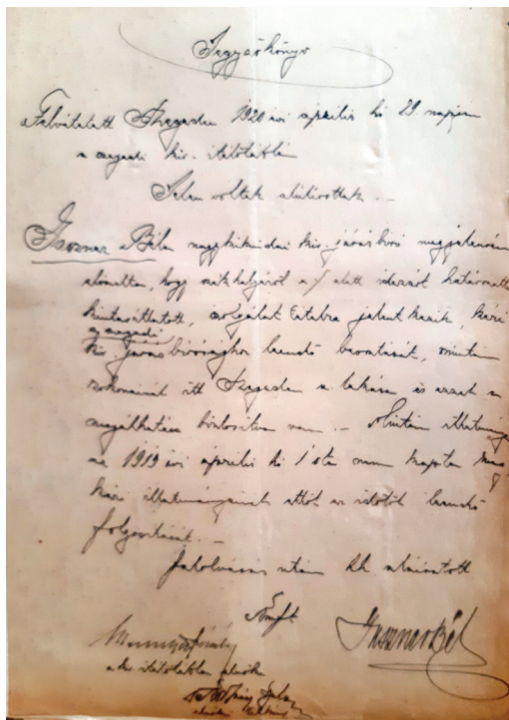 Jegyzőkönyv
Felvétetett Szegeden 1920 évi április hó 29 napján
a szegedi kir. itélőtáblán
Jelen voltak alulirottak. –
Jaszner Béla nagykikindai kir. járásbiró megjelenvén
előadta, hogy székhelyéről a ·/· alatt idezárt határozattal
kiutasittatott, szolgálat tételre jelentkezik, kéri
a szegedi
kir. járásbirósághoz leendő beosztását, miután
rokonainál itt Szegeden a lakása és ezzel a
megélhetése biztositva van. – Miután illetményeit
az 1919 évi április hó 1 óta nem kapta meg
kéri illetményeinek ettől az időtől leendő
folyósitását. –
Felolvasás után h. aláiratott
Kmft
Jaszner Béla
a kir. itélőtábla elnöke